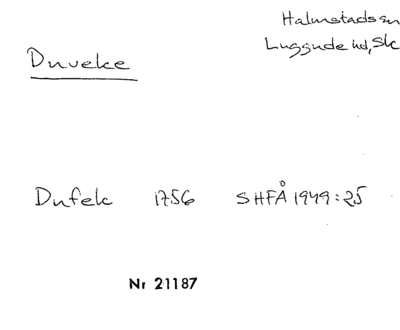 Halmstads sn
Luggude hd, Sk
Duveke
Dufek 1756 SHFÅ 1949:25
Nr 21187